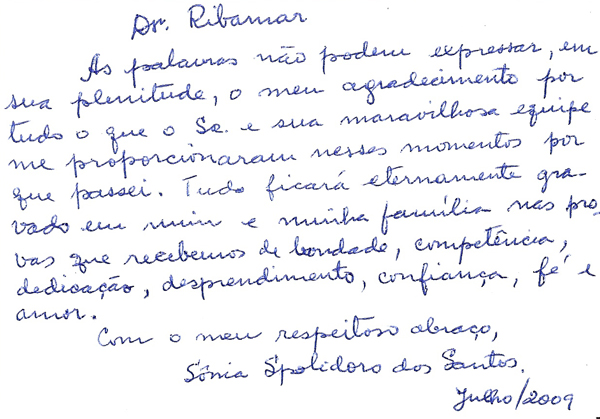 Dr. Ribamar
As palavras não podem expressar, em
sua plenitude, o meu agradecimento por
tudo o que o Sr. e sua maravilhosa equipe
me proporcionaram nesses momentos por
que passei. Tudo ficará eternamente gra-
vado em mim e minha família nas pro-
vas que recebemos de bondade, competência,
dedicação, desprendimento, confiança, fé e
amor.
Com o meu respeitoso abraço,
Sônia Spolidoro dos Santos.
Julho/2009